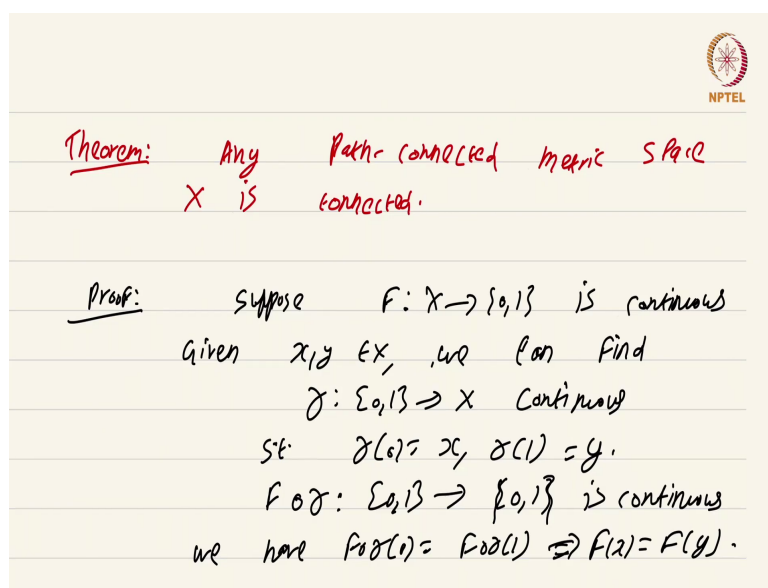 NPTEL
Theorem: Any Path-connected metric space
X is connected.
Proof: Suppose F: X → {0,1} is continuous
Given x,y ∈ X, we can find
γ: [0,1] → X continuous
s.t. γ(0) = x, γ(1) = y.
F∘γ: [0,1] → {0,1} is continuous
we have F∘γ(0) = F∘γ(1) ⇒ F(x) = F(y).